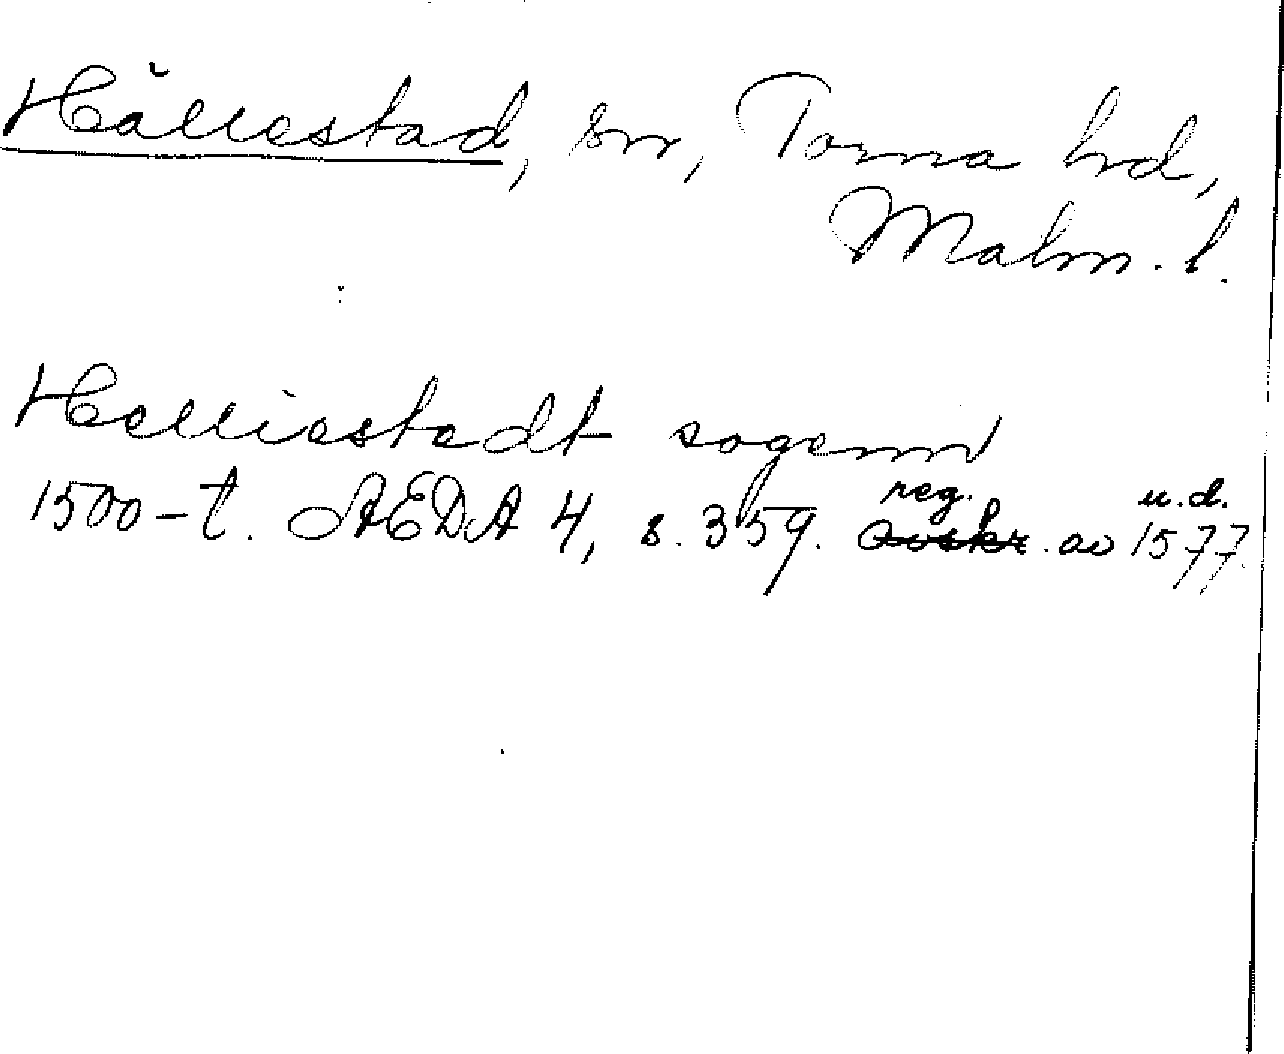 Hällestad, sn, Torna hd,
Malm. l.
Helliestadt sogenn
1500-t. AEDA 4, s. 359. reg. av 1577 u.d.